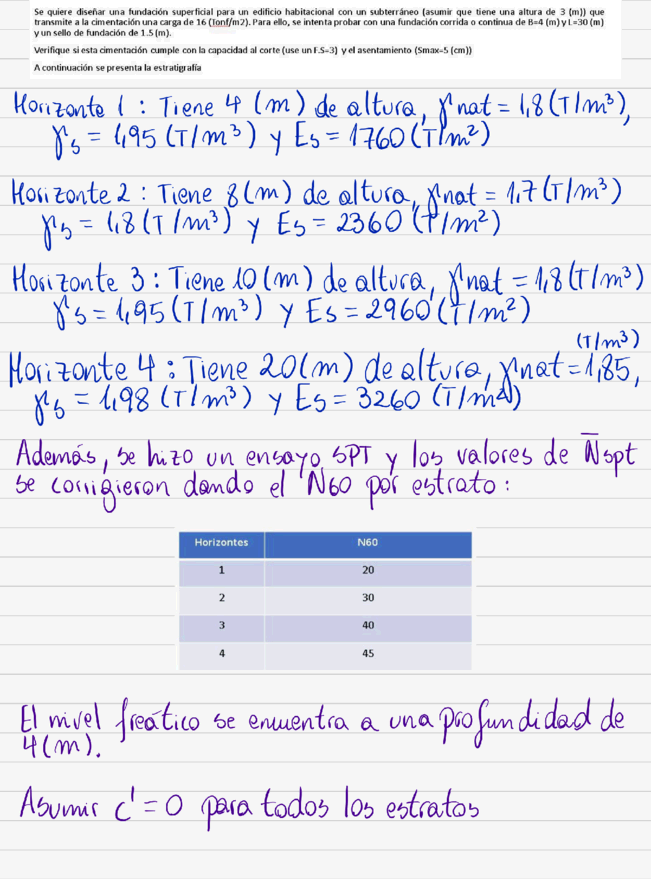 Se quiere diseñar una fundación superficial para un edificio habitacional con un subterráneo (asumir que tiene una altura de 3 (m)) que
transmite a la cimentación una carga de 16 (Tonf/m2). Para ello, se intenta probar con una fundación corrida o continua de B=4 (m) y L=30 (m)
y un sello de fundación de 1.5 (m).
Verifique si esta cimentación cumple con la capacidad al corte (use un F.S=3) y el asentamiento (Smax=5 (cm))
A continuación se presenta la estratigrafía
Horizonte 1 : Tiene 4 (m) de altura, γnat = 1,8 (T/m³),
γs = 1,95 (T/m³) y Es = 1760 (T/m²)
Horizonte 2 : Tiene 8 (m) de altura, γnat = 1,7 (T/m³)
γs = 1,8 (T/m³) y Es = 2360 (T/m²)
Horizonte 3 : Tiene 10 (m) de altura, γnat = 1,8 (T/m³)
γs = 1,95 (T/m³) y Es = 2960 (T/m²)
(T/m³)
Horizonte 4 : Tiene 20 (m) de altura, γnat = 1,85,
γs = 1,98 (T/m³) y Es = 3260 (T/m²)
Además, se hizo un ensayo SPT y los valores de N̅spt
se corrigieron dando el N60 por estrato :
Horizontes N60
1 20
2 30
3 40
4 45
El nivel freático se encuentra a una profundidad de
4 (m).
Asumir c' = 0 para todos los estratos